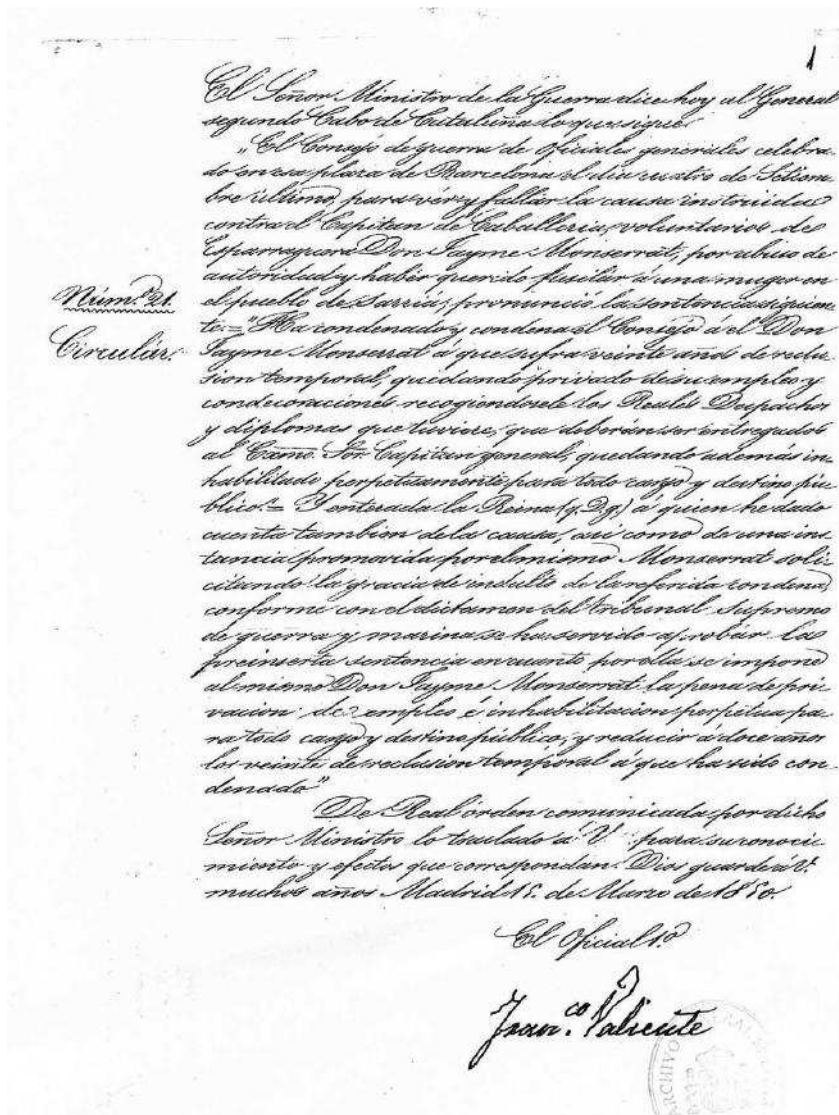 1
El Señor Ministro de la Guerra dice hoy al General
segundo Cabo de Cataluña lo que sigue
"El Consejo de guerra de Oficiales generales celebra-
do en esa plaza de Barcelona el dia cuatro de Setiem-
bre último, para vér y fallar la causa instruida
contra el Capitan de Caballeria, voluntarios de
Esparraguera Don Jayme Monserrat, por abuso de
autoridad y habér querido fusilar á una muger en
el pueblo de Sarriá, pronunció la sentencia siguien-
te = "Ha condenado y condena el Consejo á el Don
Jayme Monserrat á que sufra veinte años de reclu-
sion temporal, quedando privado de su empleo y
condecoraciones recogiendosele los Reales Despachos
y diplomas que tuviere, que deberán ser entregados
al Escmo. Sor. Capitan general, quedando además in-
habilitado perpetuamente para todo cargo y destino pú-
blico. = Y enterada la Reina (q. D. g.) á quien he dado
cuenta tambien de la causa, asi como de una ins-
tancia promovida por el mismo Monserrat soli-
citando la gracia de indulto de la referida condena,
conforme con el dictamen del tribunal Supremo
de guerra y marina se ha servido aprobar la
preinserta sentencia en cuanto por ella se impone
al mismo Don Jayme Monserrat la pena de pri-
vacion de empleo é inhabilitacion perpétua pa-
ra todo cargo y destino público, y reducir á doce años
los veinte de reclusion temporal á que ha sido con-
denado"
De Real órden comunicada por dicho
Señor Ministro lo traslado á V. para su conoci-
miento y efectos que correspondan. Dios guarde á V.
muchos años Madrid 15. de Marzo de 1850.
Núm.º 21.
Circulár.
El Oficial 1.º
Fran.co Valiente
ARCHIVO